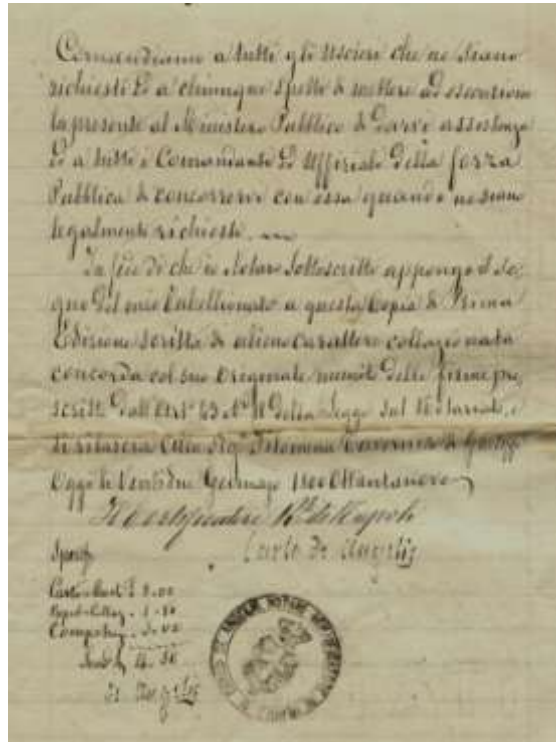 Comandiamo a tutti gli Uscieri che ne siano
richiesti ed a chiunque spetti di mettere ad esecuzione
la presente al Ministero Pubblico di darvi assistenza
ed a tutti i Comandanti ed Uffiziali della forza
Pubblica di concorrervi con essa quando ne siano
legalmente richiesti.
In fede di che io Notaro sottoscritto appongo il se-
gno del mio Tabellionato a questa Copia di Prima
Edizione scritta di alieno carattere collazionata
concorda col suo Originale munito delle firme pre-
scritte dall'Art. 43 N. 11 della Legge sul Notariato, e
si rilascia alla Sig. Filomena di Giuseppe
Oggi li Ventidue Gennajo 1800 Ottantanove
Il Certificatore di Napoli
Carlo de Angelis
Specifica
Carta
3.00
de Angelis